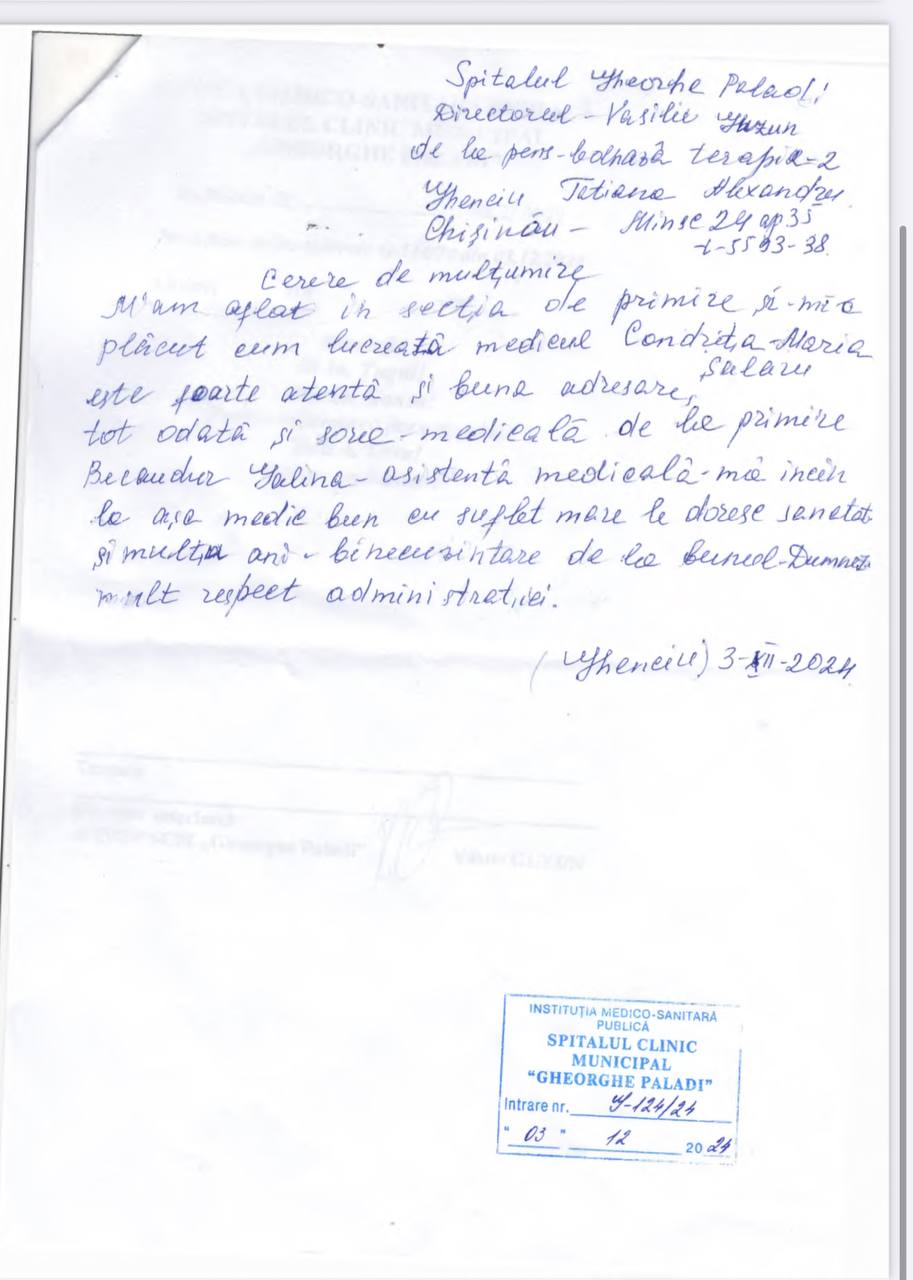 Spitalul Gheorghe Paladi
Directorul - Vasilie Guzun
de la pens-bolnavă terapia-2
Ghenciu Tatiana Alexandru
Chișinău - Minsc 24 ap 35
t-55 93-38.
Cerere de mulțumire
M'am aflat in secția de primire și-mi-a
plăcut cum lucrează medicul Condrița-Maria
Salaru
este foarte atentă și buna adresare,
tot odată și sora-medicală de la primire
Galina - asistentă medicală-mă incin
la așa medic bun cu suflet mare le doresc sanatat
și mulția ani - binecuvintare de la bunul-Dumnez
mult respect administrației.
(Ghenciu) 3-XII-2024
INSTITUȚIA MEDICO-SANITARĂ
PUBLICĂ
SPITALUL CLINIC
MUNICIPAL
"GHEORGHE PALADI"
Intrare nr. G-124/24
" 03 " 12 2024